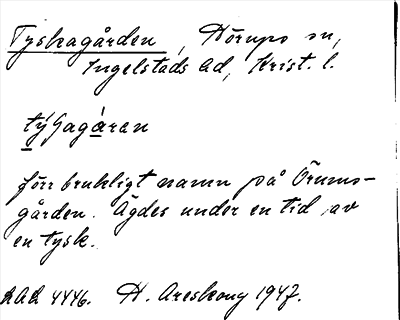 Tyskagården, Hörups sn,
Ingelstads hd, Krist. l.
týsagáran
förr brukligt namn på Örums-
gården. Ägdes under en tid av
en tysk.
LAL 4446. H. Areskoug 1947.